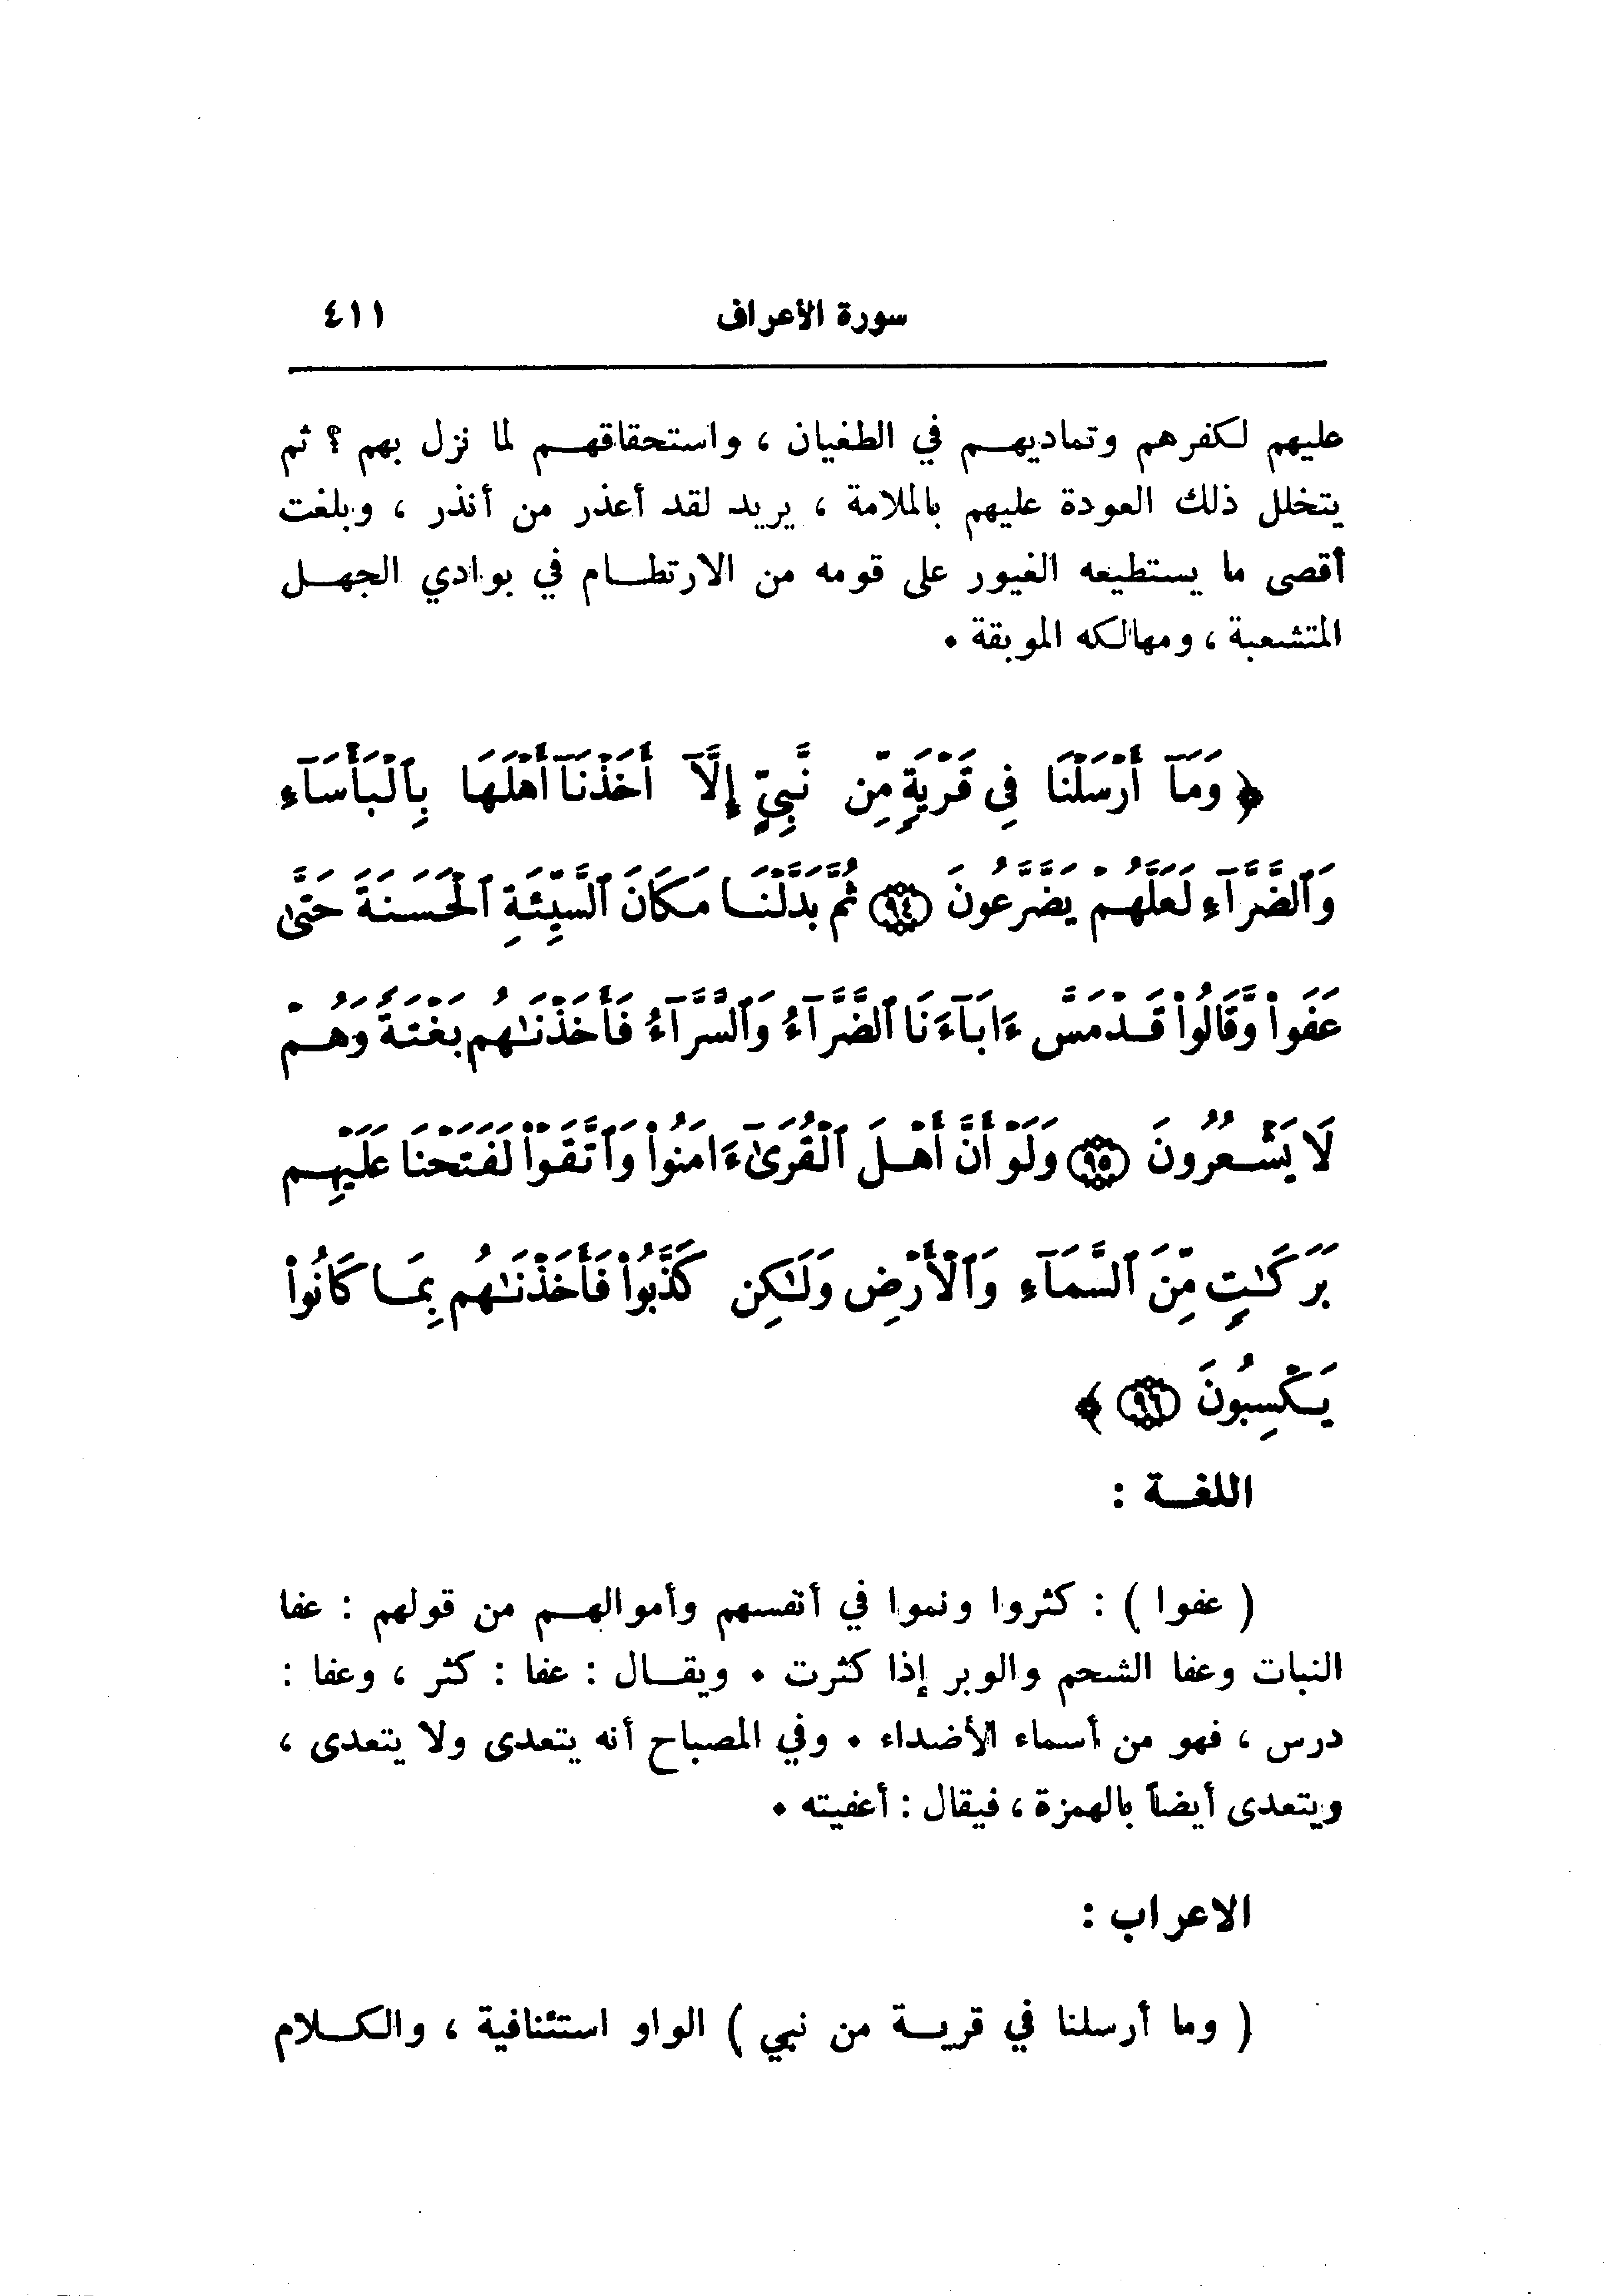 سورة الأعراف ٤١١
عليهم لكفرهم وتماديهم في الطغيان ، واستحقاقهم لما نزل بهم ؟ ثم
يتخلل ذلك العودة عليهم بالملامة ، يريد لقد أعذر من أنذر ، وبلغت
أقصى ما يستطيعه الغيور على قومه من الارتطام في بوادي الجهل
المتشعبة ، ومهالكه الموبقة .
﴿ وَمَآ أَرْسَلْنَا فِى قَرْيَةٍ مِّن نَّبِىٍّ إِلَّآ أَخَذْنَآ أَهْلَهَا بِٱلْبَأْسَآءِ
وَٱلضَّرَّآءِ لَعَلَّهُمْ يَضَّرَّعُونَ ٩٤ ثُمَّ بَدَّلْنَا مَكَانَ ٱلسَّيِّئَةِ ٱلْحَسَنَةَ حَتَّىٰ
عَفَوا۟ وَّقَالُوا۟ قَدْ مَسَّ ءَابَآءَنَا ٱلضَّرَّآءُ وَٱلسَّرَّآءُ فَأَخَذْنَٰهُم بَغْتَةً وَهُمْ
لَا يَشْعُرُونَ ٩٥ وَلَوْ أَنَّ أَهْلَ ٱلْقُرَىٰٓ ءَامَنُوا۟ وَٱتَّقَوْا۟ لَفَتَحْنَا عَلَيْهِم
بَرَكَٰتٍ مِّنَ ٱلسَّمَآءِ وَٱلْأَرْضِ وَلَٰكِن كَذَّبُوا۟ فَأَخَذْنَٰهُم بِمَا كَانُوا۟
يَكْسِبُونَ ٩٦ ﴾
اللغة :
( عفوا ) : كثروا ونموا في أنفسهم وأموالهم من قولهم : عفا
النبات وعفا الشحم والوبر إذا كثرت . ويقال : عفا : كثر ، وعفا :
درس ، فهو من أسماء الأضداء . وفي المصباح أنه يتعدى ولا يتعدى ،
ويتعدى أيضاً بالهمزة ، فيقال : أعفيته .
الاعراب :
( وما أرسلنا في قرية من نبي ) الواو استئنافية ، والكلام